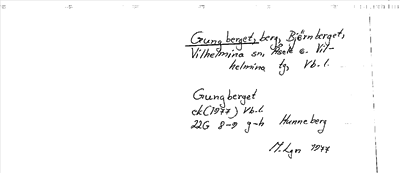 Gungberget, berg, Björnberget,
Vilhelmina sn, Åsele o. Vil-
helmina tg, Vb.l.
Gungberget
ek (1977) Vb.l.
22G 8-9 g-h Hunneberg
M.Lgn 1977